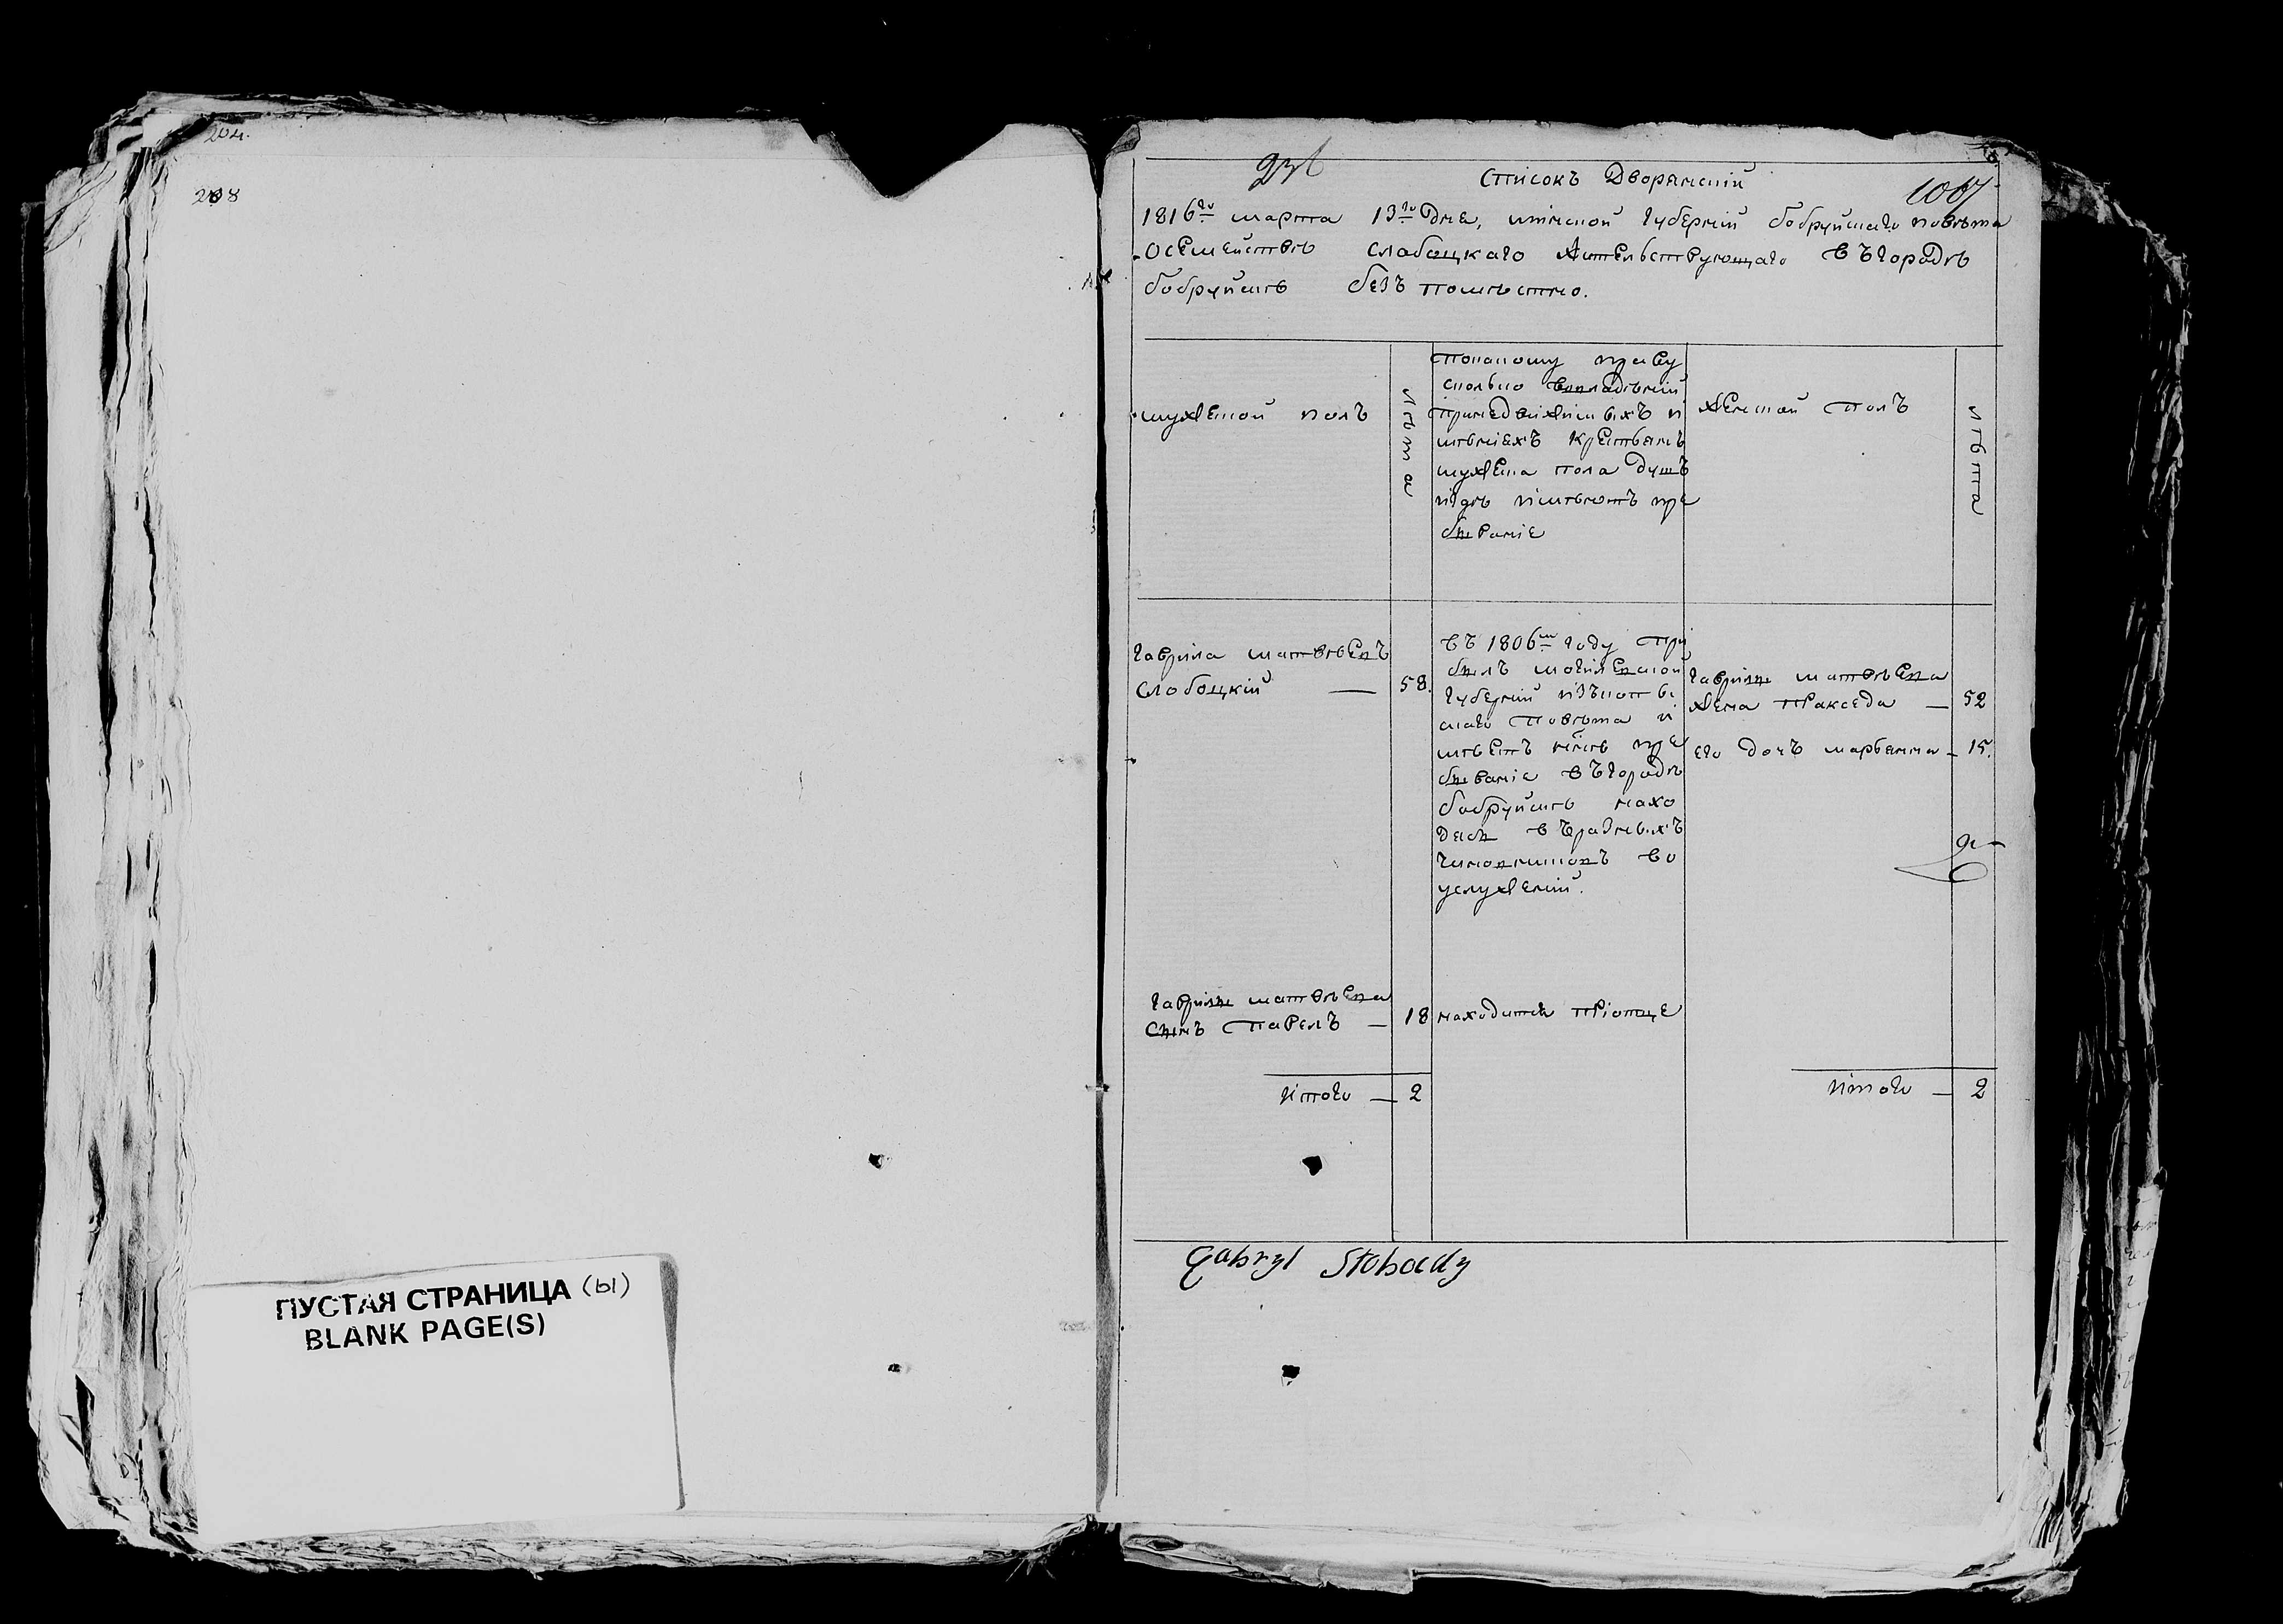 204.
208
ПУСТАЯ СТРАНИЦА (ы)
BLANK PAGE(S)
Списокъ Дворянскій
1067
1816го марта 13го дня, минской губерніи бобруйскаго повѣта
осемействѣ слабоцкаго жительствующаго въгородѣ
бобруйскѣ безъ помѣстно.
мужеской полъ
лѣта
покакому праву
сколько вовладѣніи
принедвижимыхъ и
мѣніяхъ крестьянъ
мужеска пола душъ
игдѣ имѣютъ пре
бываніе
женской полъ
лѣта
гаврила матвѣевъ
слобоцкій — 58.
въ 1806м году при
былъ могилевской
губерніи
скаго повѣта и
мѣетъ нынѣ пре
бываніе въгородѣ
бобруйскѣ нахо
дясь въразныхъ
чиновниковъ во
услуженіи.
гаврилы матвѣева
жена праkседа — 52
его дочъ марьянна — 15.
гаврилы матвѣева
сынъ павелъ — 18
находится приотце
итого — 2
итого — 2
Gabryl Słobocky